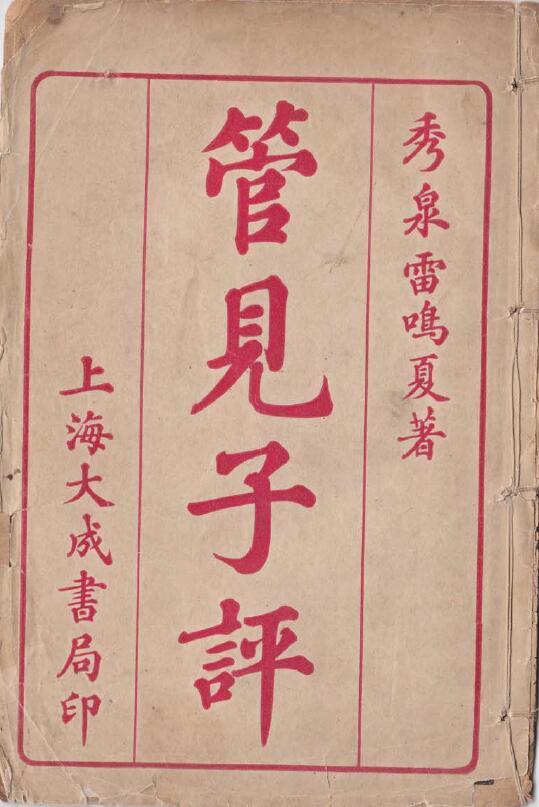 秀泉雷鳴夏著
管見子評
上海大成書局印